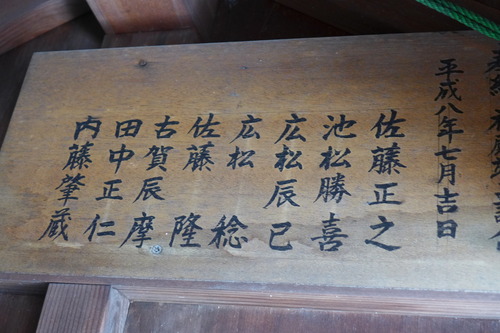 平成八年七月吉日
佐藤正之
池松勝喜
広松辰巳
広松稔
佐藤隆
古賀辰摩
田中正仁
内藤肇蔵